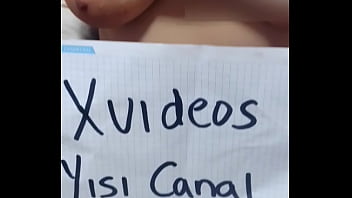 Xvideos
Yisi Canal